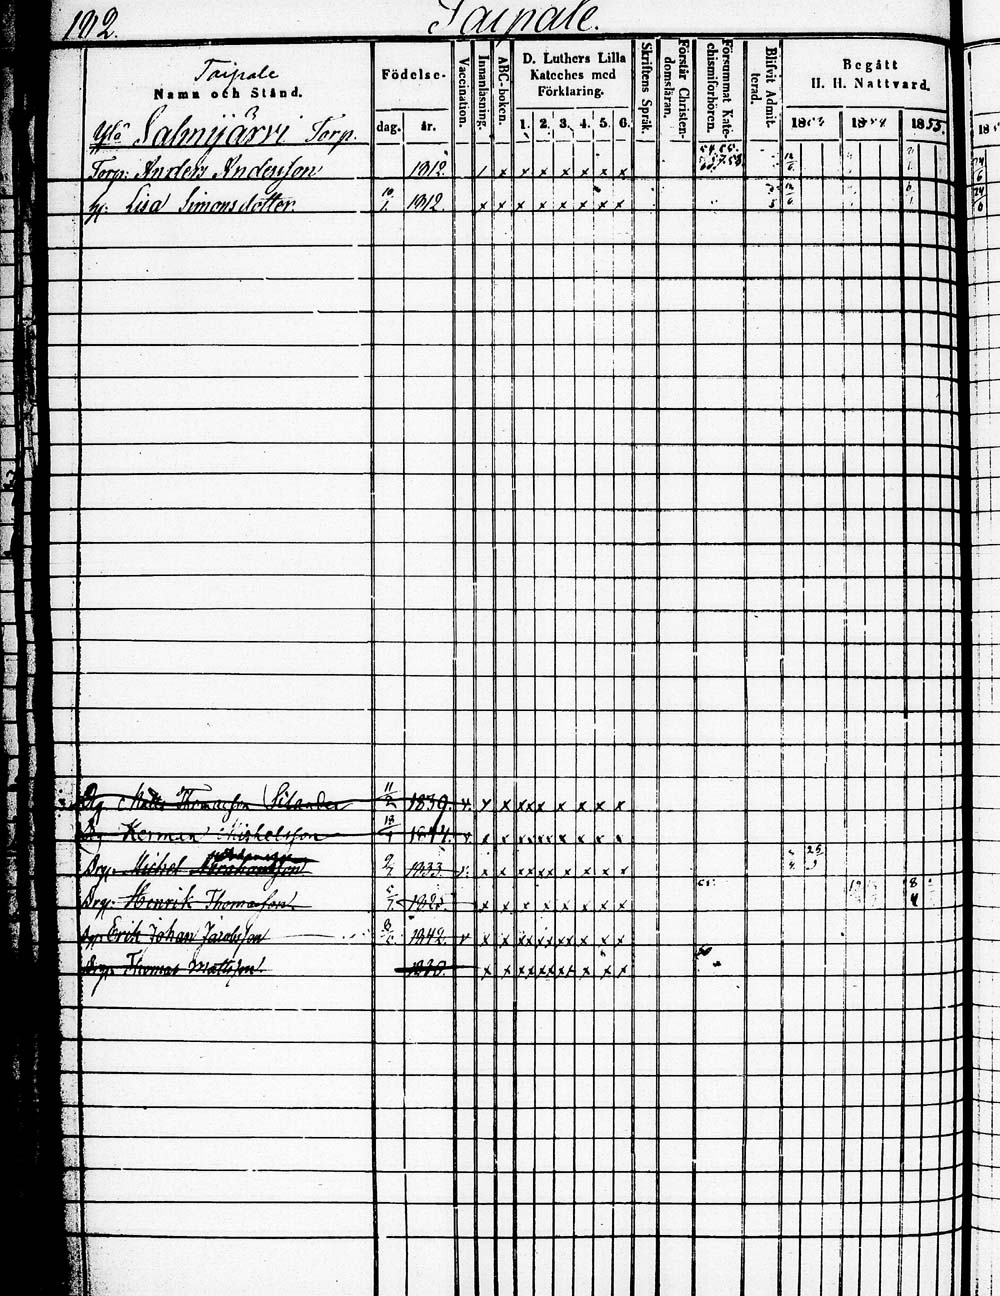 192. Taipale.
Taipale
Namn och Stånd.
Födelse-
dag. år.
Vaccination.
Innanläsning.
ABC-boken.
D. Luthers Lilla
Kateches med
Förklaring.
1. 2. 3. 4. 5. 6.
Skriftens Språk.
Förstår Christen-
domsläran.
Försummat Kate-
chismiförhören.
Blifvit Admit-
terad.
Begått
H. H. Nattvard.
1853 1854 1855.
Ylö Salmijärvi Torp.
Torp: Anders Andersson 1812. / x x x x x x x
H: Lisa Simonsdotter 10/1. 1812 x x x x x x x x
Dg Matts Thomasson Silander 11/2 1839. v. x x x x x x x x x
Herman Michelsson 18/1 v x x x x x x x x x
Drg. Michel Abrahamsson 1833. v. x x x x x x x x
Drg: Henrik Thomasson x x x x x x x x
Erik Johan Jacobsson 1842. v x x x x x x x x x x x
Drg. Thomas Mattsson 1830. x x x x x x x x x x x